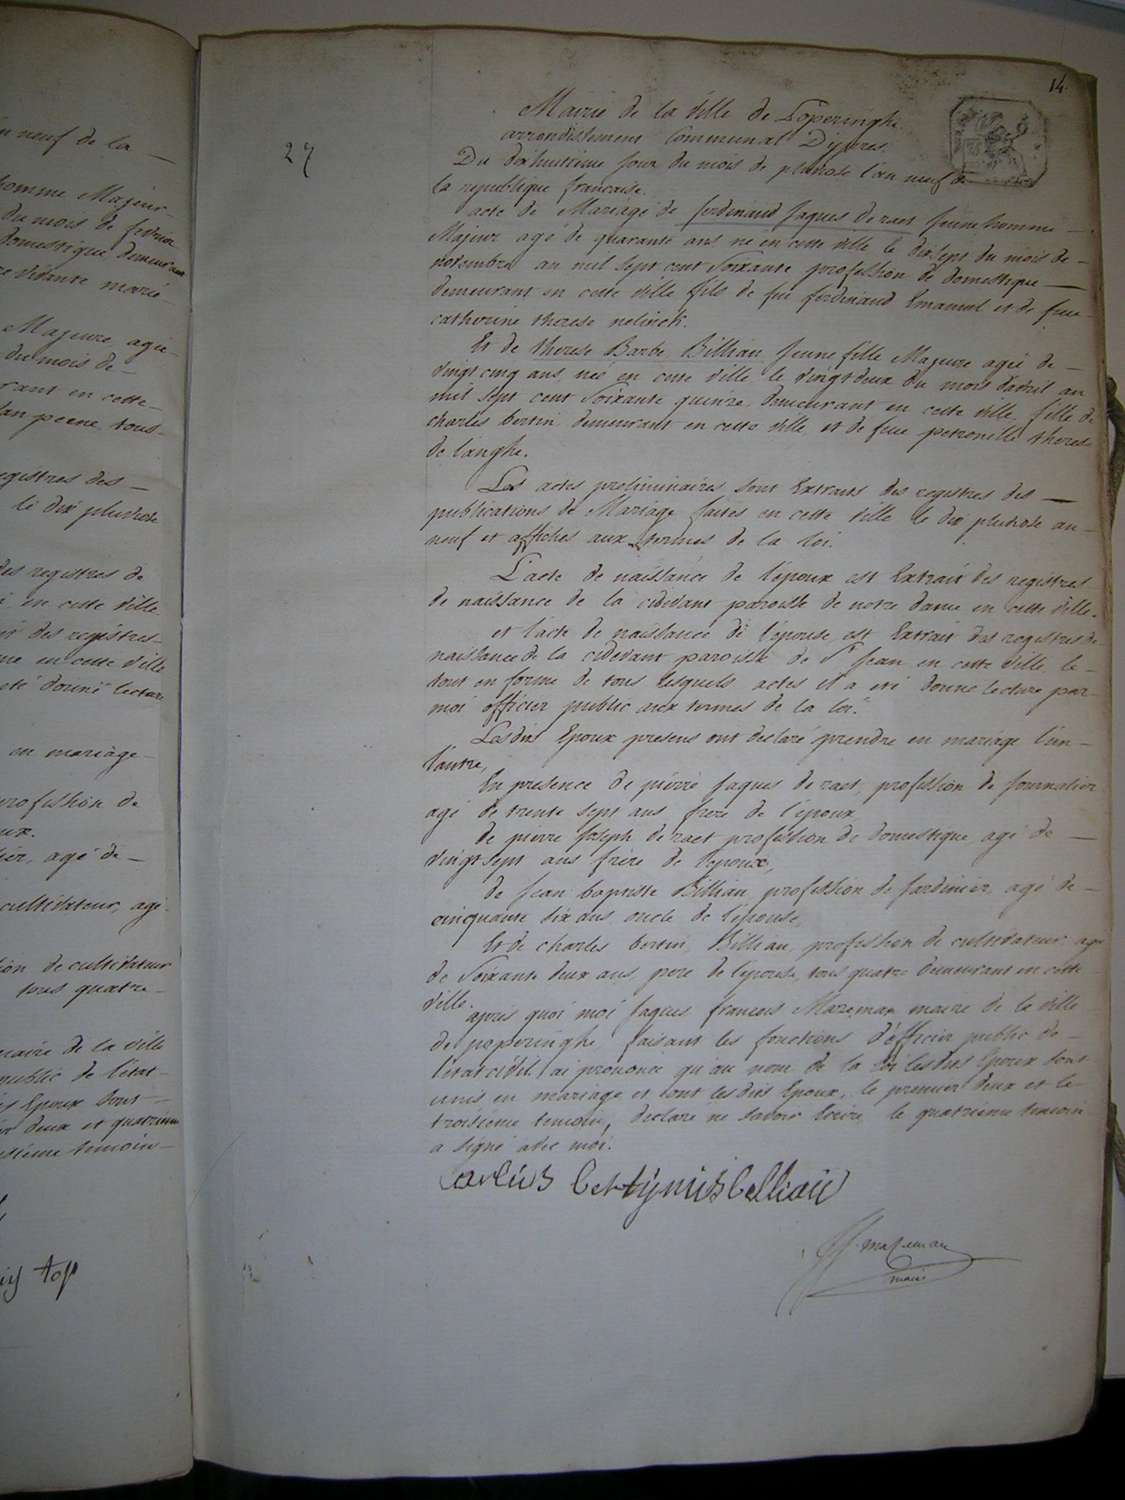 in neuf de la —
homme Majeur
du mois de fevrier
domestique demeurant
marié
Majeure agée
du mois de —
rant en cette —
registres des —
le dix pluviose
des registres de
en cette ville
des registres
me en cette ville
eté donné lecture
en mariage
profession de
ux.
ier, agé de —
cultivateur, agé
ion de cultivateur
tous quatre —
maire de la ville
public de l'état
epoux sont —
deux et quatrieme
temoin —
top
14
27
Mairie de la ville de Poperinghe
arrondissement Communal D'ypres.
Du dixhuitieme jour du mois de pluviose l'an neuf de
la republique francaise.
acte de Mariage de ferdinand Jaques de raet Jeune homme —
Majeur agé de quarante ans né en cette ville le dixsept du mois de —
novembre an mil sept cent Soixante profession de domestique —
demeurant en cette ville fils de feu ferdinand Emanuel et de feue
catherine therese nelinck.
Et de therese Barbe Billiau Jeune fille Majeure agée de —
vingt cinq ans, née en cette ville le vingt deux du mois d'avril an
mil sept cent Soixante quinze demeurant en cette ville fille de
charles bertin demeurant en cette ville et de feue petronille therese
de langhe.
Les actes preliminaires sont Extraits des registres des —
publications de Mariage faites en cette ville le dix pluviose an —
neuf et affichés aux termes de la loi.
L'acte de naissance de l'époux est Extrait des registres
de naissance de la cidevant paroisse de notre dame en cette ville.
et l'acte de naissance de l'épouse est Extrait des registres de
naissance de la cidevant paroisse de St Jean en cette ville le
tout en forme de tous lesquels actes il a eté donné lecture par
moi officier public aux termes de la loi.
Lesdits Epoux presens ont declaré prendre en mariage l'un —
l'autre,
En presence de pierre Jaques de raet, profession de Journalier
agé de trente sept ans frere de l'époux
de pierre Joseph de raet profession de domestique, agé de —
vingt sept ans frère de l'epoux,
de Jean baptiste Billiau profession de Jardinier, agé de —
cinquante six ans oncle de l'épouse
Et de charles bertin Billiau, profession de cultivateur agé
de Soixante deux ans, pere de l'epouse, tous quatre demeurant en cette
ville.
après quoi moi Jaques francois Mazeman maire de la ville
de poperinghe, faisant les fonctions d'officier public de —
l'etat civil ai prononcé qu'au nom de la loi lesdits Epoux sont
unis en mariage et ont lesdits Epoux, le premier deux et le
troisieme temoin, declaré ne savoir Ecrire le quatrieme temoin
a signé avec moi.
Carolus Bertijnus Belliaü
JF. mazeman
maire